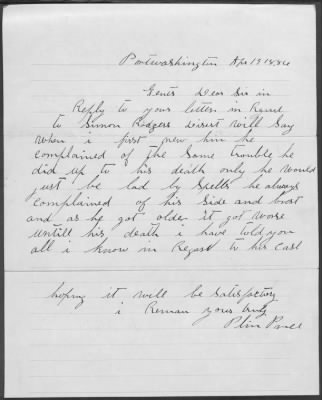 Portwashington Apr 19 1884
Gents Dear Sir in
Reply to your letter in Reard
to Simon Rodgers Disest will Say
when i first new him he
complained of the Same trouble he
did up to his death only he would
just be bad by Spells he always
complained of his Side and brest
and as he got older it got worse
untill his death i have told you
all i know in Regard to his Case
hoping it will be Satisfactory
i Reman yours truly